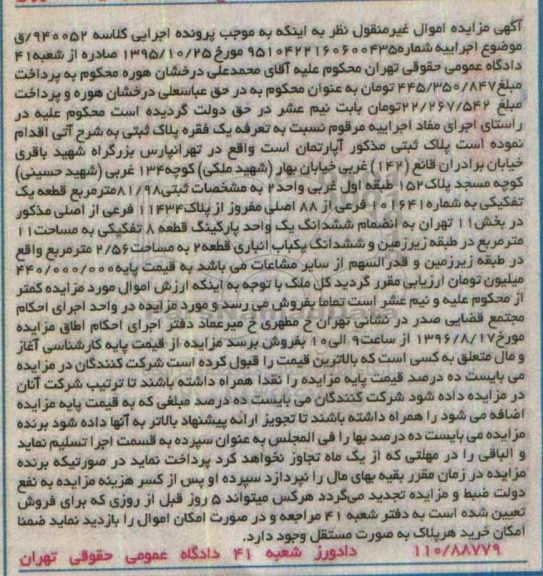 آگهی مزایده اموال غیرمنقول نظر به اینکه به موجب پرونده اجرایی کلاسه ۹۴۰۰۵۲/ق
موضوع اجراییه شماره۹۵۱۰۴۲۲۱۶۰۶۰۰۴۳۵ مورخ ۱۳۹۵/۱۰/۲۵ صادره از شعبه۴۱
دادگاه عمومی حقوقی تهران محکوم علیه آقای محمدعلی درخشان هوره محکوم به پرداخت
مبلغ۴۴۵/۳۵۰/۸۴۷ تومان به عنوان محکوم به در حق عباسعلی درخشان هوره و پرداخت
مبلغ ۲۲/۲۶۷/۵۴۲تومان بابت نیم عشر در حق دولت گردیده است محکوم علیه در
راستای اجرای مفاد اجراییه مرقوم نسبت به تعرفه یک فقره پلاک ثبتی به شرح آتی اقدام
نموده است پلاک ثبتی مذکور آپارتمان است واقع در تهرانپارس بزرگراه شهید باقری
خیابان برادران قانع (۱۴۲) غربی خیابان بهار (شهید ملکی) کوچه۱۳۴ غربی (شهید حسینی)
کوچه مسجد پلاک۱۵۲ طبقه اول غربی واحد۲ به مشخصات ثبتی۸۱/۹۸مترمربع قطعه یک
تفکیکی به شماره۱۰۱۶۴۱ فرعی از ۸۸ اصلی مفروز از پلاک۱۱۴۳۴ فرعی از اصلی مذکور
در بخش۱۱ تهران به انضمام ششدانگ یک واحد پارکینگ قطعه ۸ تفکیکی به مساحت۱۱
مترمربع در طبقه زیرزمین و ششدانگ یکباب انباری قطعه۲ به مساحت۲/۵۶ مترمربع واقع
در طبقه زیرزمین و قدرالسهم از سایر مشاعات می باشد به قیمت پایه۴۴۰/۰۰۰/۰۰۰
میلیون تومان ارزیابی مقرر گردید کل ملک با توجه به اینکه ارزش اموال مورد مزایده کمتر
از محکوم علیه و نیم عشر است تماما بفروش می رسد و مورد مزایده در واحد اجرای احکام
مجتمع قضایی صدر در نشانی تهران خ مطهری خ میرعماد دفتر اجرای احکام اطاق مزایده
مورخ۱۳۹۶/۸/۱۷ از ساعت۹ الی۱۰ بفروش برسد مزایده از قیمت پایه کارشناسی آغاز
و مال متعلق به کسی است که بالاترین قیمت را قبول کرده است شرکت کنندگان در مزایده
می بایست ده درصد قیمت پایه مزایده را نقدا همراه داشته باشند تا ترتیب شرکت آنان
در مزایده داده شود شرکت کنندگان می بایست ده درصد مبلغی که به قیمت پایه مزایده
اضافه می شود را همراه داشته باشند تا تجویز ارائه پیشنهاد بالاتر به آنها داده شود برنده
مزایده می بایست ده درصد بها را فی المجلس به عنوان سپرده به قسمت اجرا تسلیم نماید
و الباقی را در مهلتی که از یک ماه تجاوز نخواهد کرد پرداخت نماید در صورتیکه برنده
مزایده در زمان مقرر بقیه بهای مال را نپردازد سپرده او پس از کسر هزینه مزایده به نفع
دولت ضبط و مزایده تجدید می‌گردد هرکس میتواند ۵ روز قبل از روزی که برای فروش
تعیین شده است به دفتر شعبه ۴۱ مراجعه و در صورت امکان اموال را بازدید نماید ضمنا
امکان خرید هرپلاک به صورت مستقل وجود دارد.
۱۱۰/۸۸۷۷۹ دادورز شعبه ۴۱ دادگاه عمومی حقوقی تهران